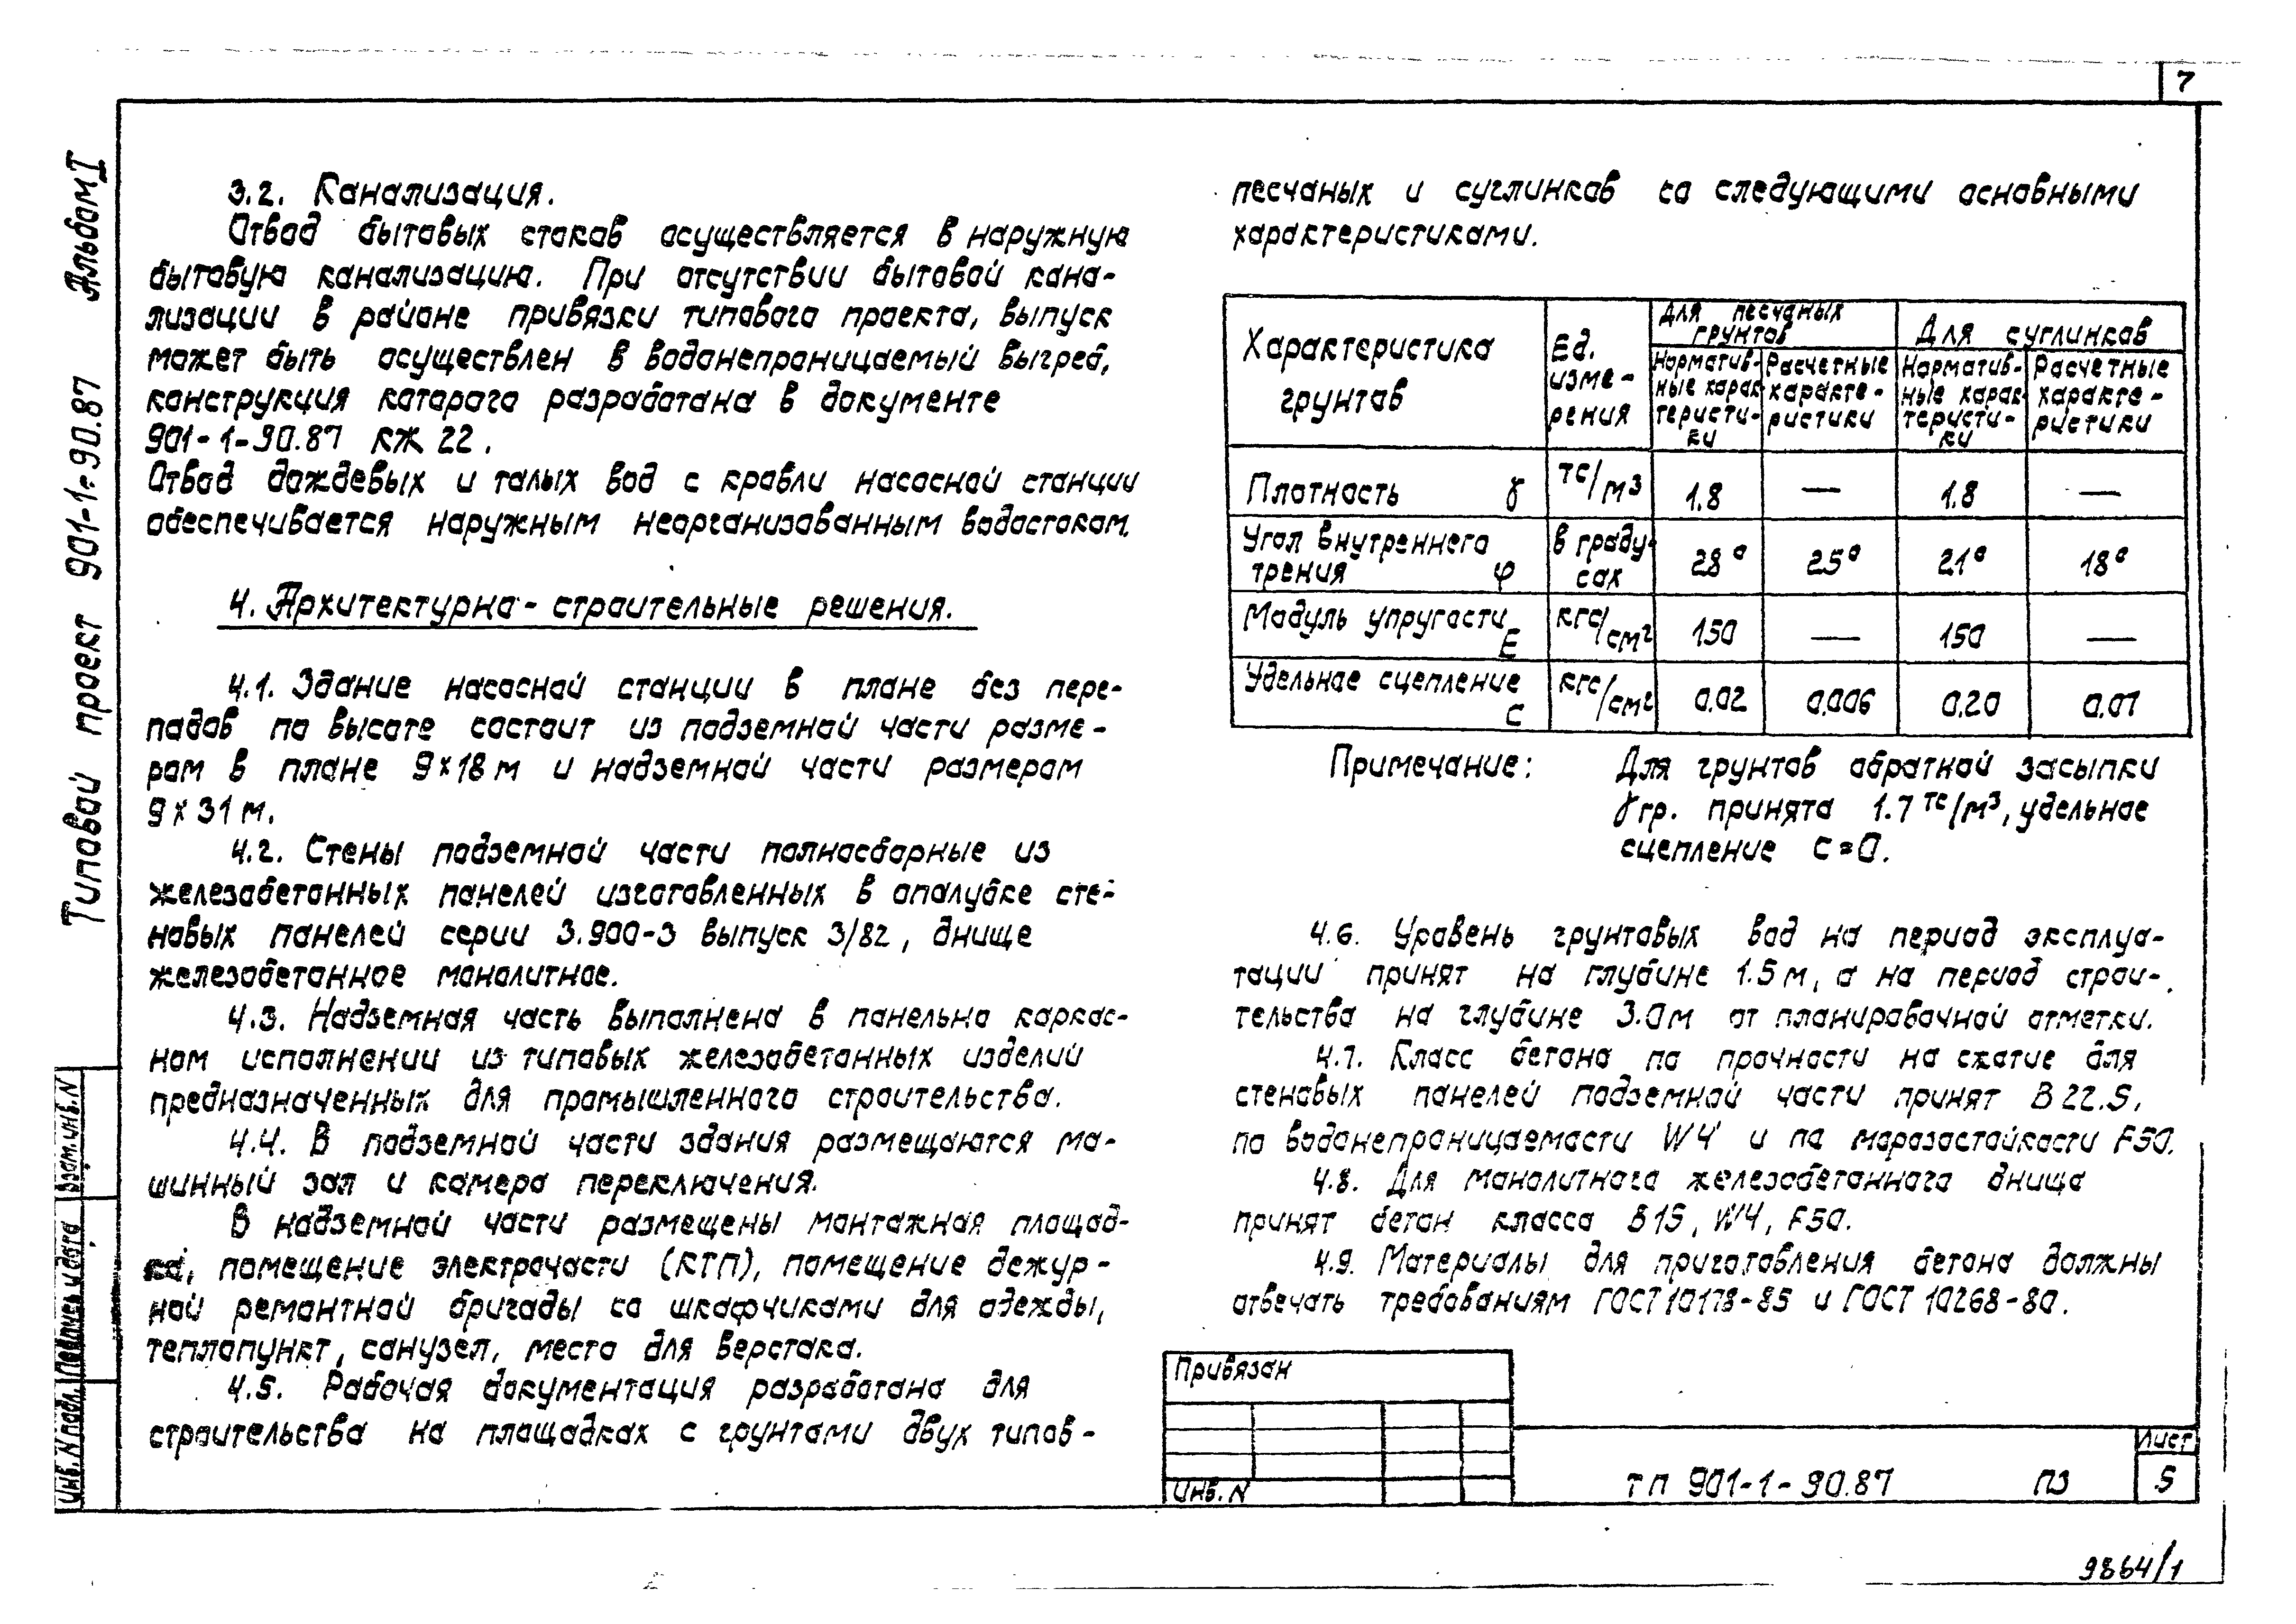 7
Типовой проект 901-1-90.87 Альбом I
3.2. Канализация.
Отвод бытовых стоков осуществляется в наружную
бытовую канализацию. При отсутствии бытовой кана-
лизации в районе привязки типового проекта, выпуск
может быть осуществлен в водонепроницаемый выгреб,
конструкция которого разработана в документе
901-1-90.87 КЖ 22.
Отвод дождевых и талых вод с кровли насосной станции
обеспечивается наружным неорганизованным водостоком.
4. Архитектурно-строительные решения.
4.1. Здание насосной станции в плане без пере-
падов по высоте состоит из подземной части разме-
ром в плане 9х18м и надземной части размером
9х31м.
4.2. Стены подземной части полносборные из
железобетонных панелей изготовленных в опалубке сте-
новых панелей серии 3.900-3 выпуск 3/82, днище
железобетонное монолитное.
4.3. Надземная часть выполнена в панельно каркас-
ном исполнении из типовых железобетонных изделий
предназначенных для промышленного строительства.
4.4. В подземной части здания размещаются ма-
шинный зал и камера переключения.
В надземной части размещены монтажная площад-
ка, помещение электрочасти (КТП), помещение дежур-
ной ремонтной бригады со шкафчиками для одежды,
теплопункт, санузел, место для верстака.
4.5. Рабочая документация разработана для
строительства на площадках с грунтами двух типов -
песчаных и суглинков со следующими основными
характеристиками.
Характеристика грунтов
Ед. изме-рения
Для песчаных грунтов
Для суглинков
Норматив-ные харак-теристи-ки
Расчетные характе-ристики
Норматив-ные харак-теристи-ки
Расчетные характе-ристики
Плотность γ тс/м3 1.8 — 1.8 —
Угол внутреннего трения φ в граду-сах 28° 25° 21° 18°
Модуль упругости E кгс/см2 150 — 150 —
Удельное сцепление C кгс/см2 0.02 0.006 0.20 0.07
Примечание: Для грунтов обратной засыпки
γгр. принята 1.7 тс/м3, удельное
сцепление C=0.
4.6. Уровень грунтовых вод на период эксплуа-
тации принят на глубине 1.5м, а на период строи-
тельства на глубине 3.0м от планировочной отметки.
4.7. Класс бетона по прочности на сжатие для
стеновых панелей подземной части принят В 22.5,
по водонепроницаемости W4 и по морозостойкости F50.
4.8. Для монолитного железобетонного днища
принят бетон класса В15, W4, F50.
4.9. Материалы для приготовления бетона должны
отвечать требованиям ГОСТ 10178-85 и ГОСТ 10268-80.
Инв. N подл. Подпись и дата Взам. инв. N
Привязан
Инв. N
ТП 901-1-90.87 ПЗ
Лист
5
9864/1